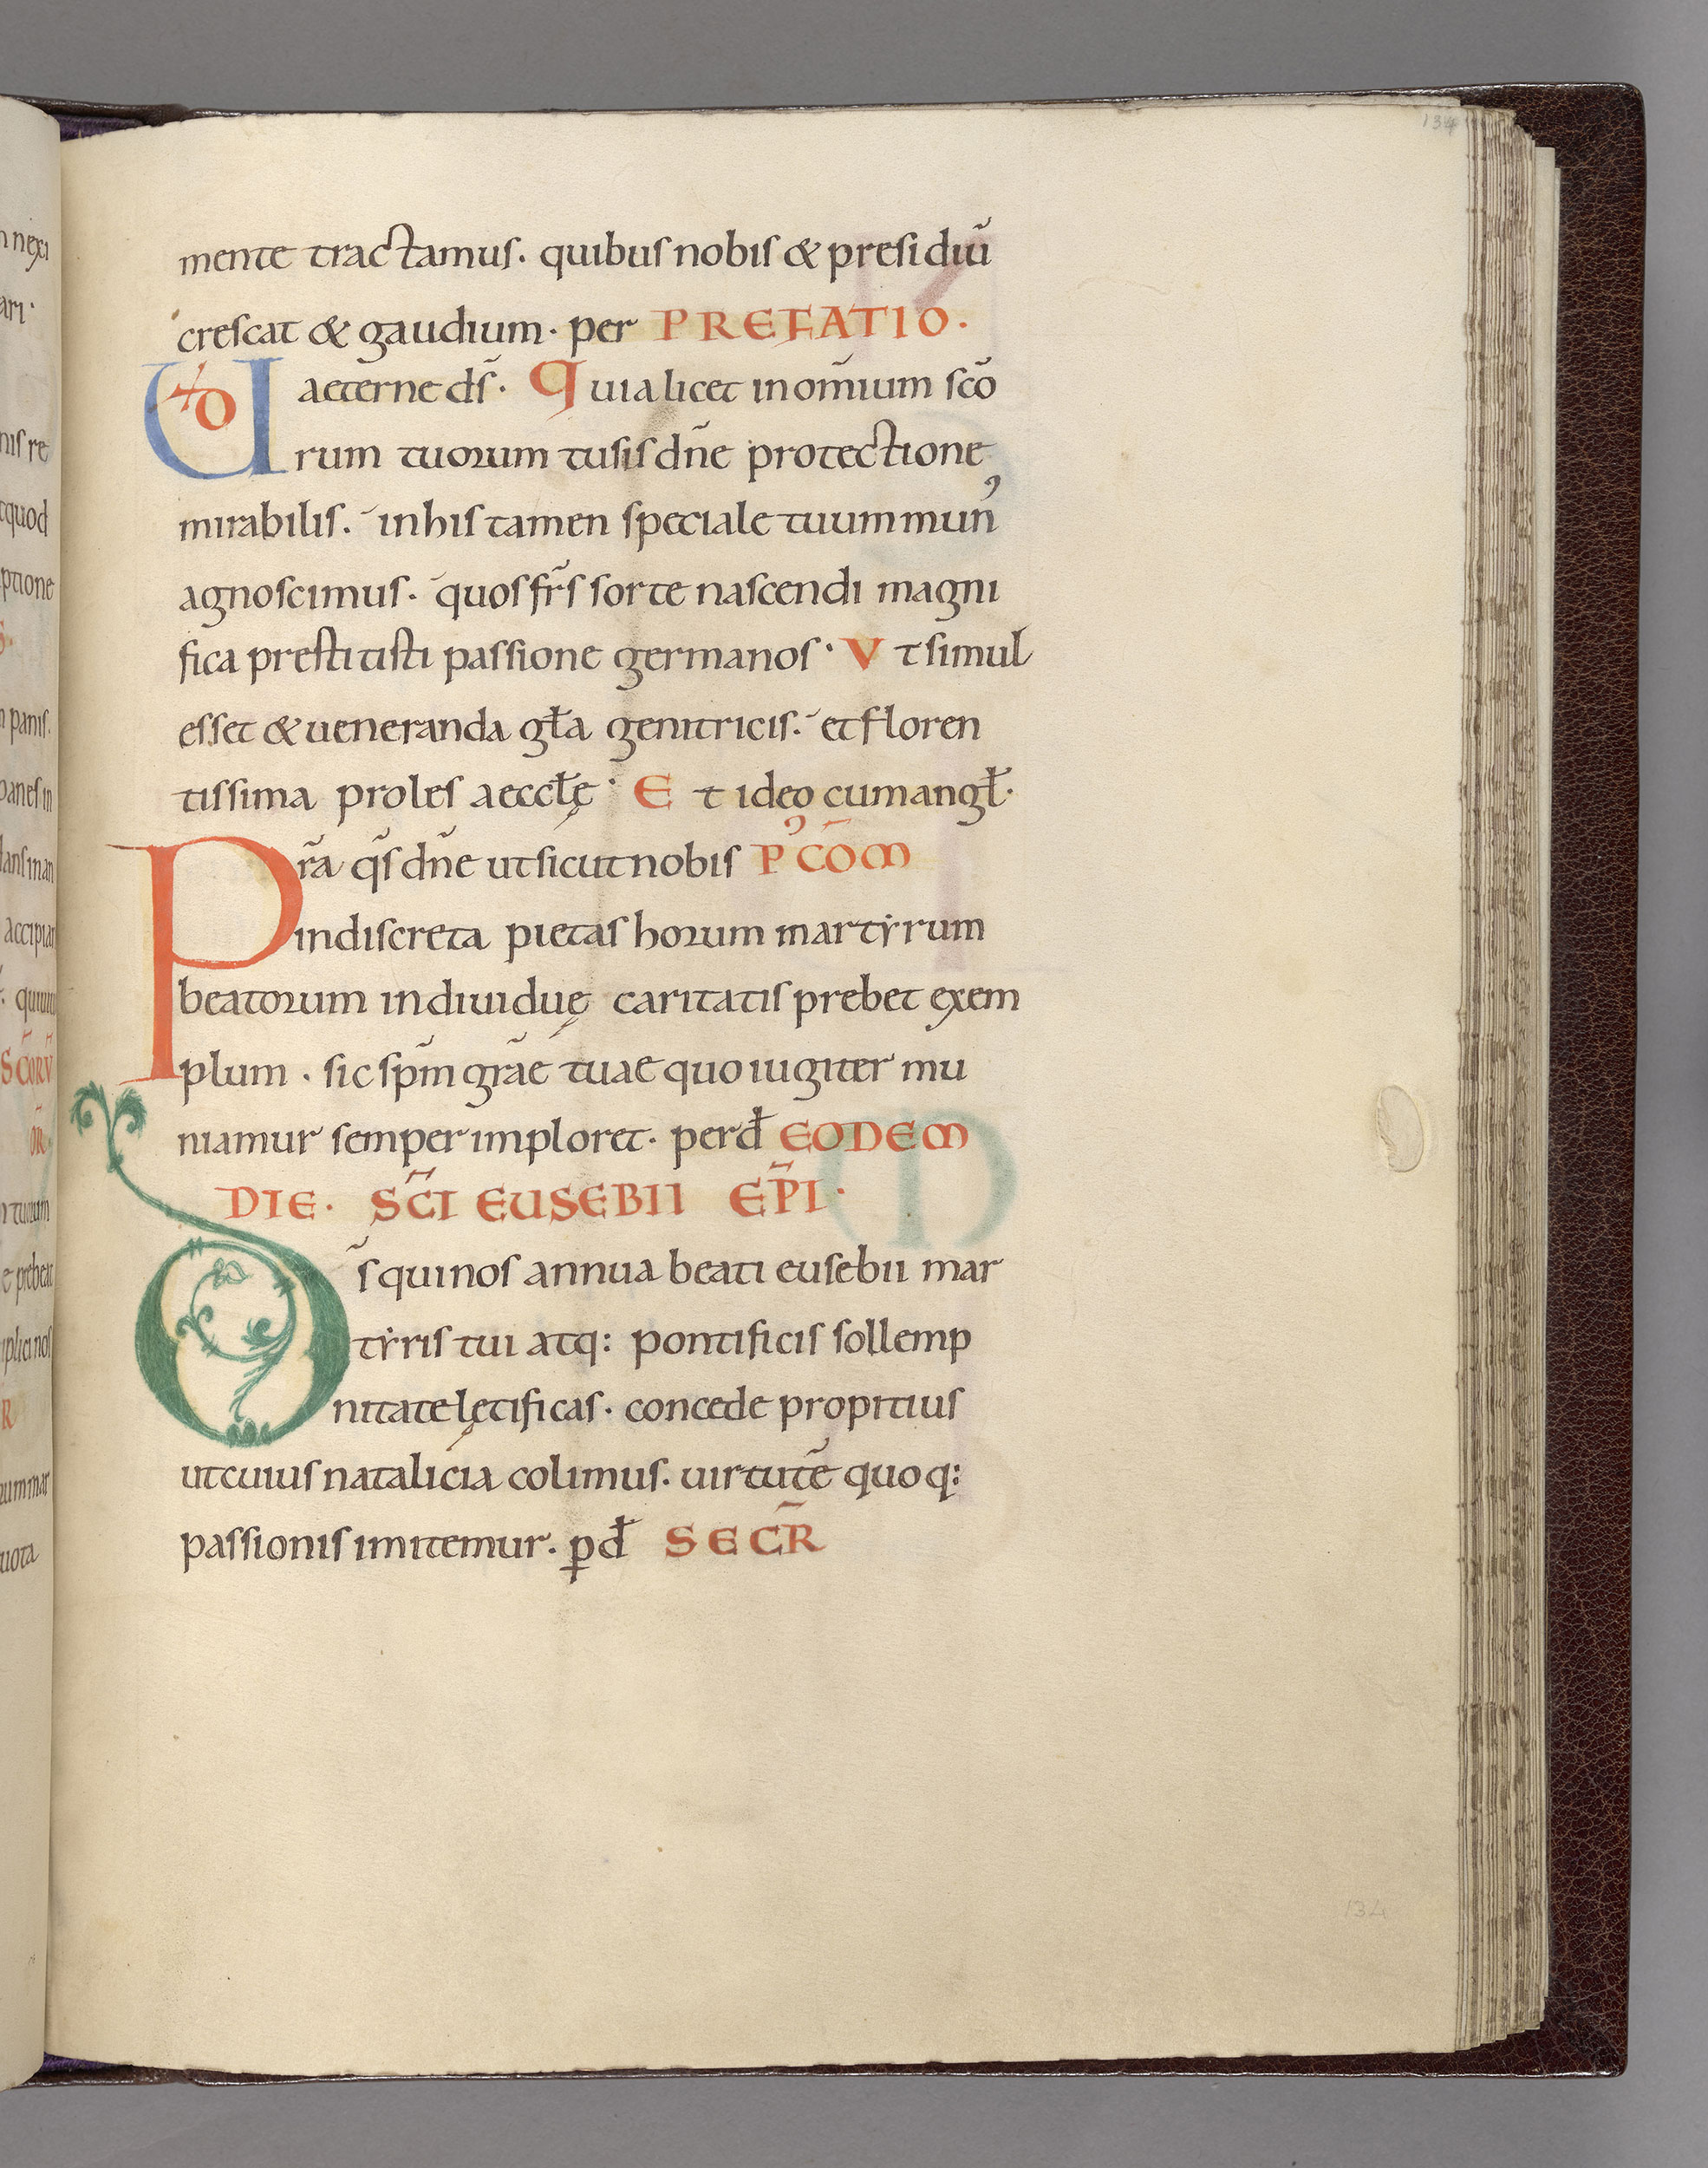 134
mente tractamus. quibus nobis & presidiū
crescat & gaudium. per PREFATIO.
UO aeterne d̄s. Quia licet in om̄ium sc̄o
rum tuorum tu sis dn̄e protectione
mirabilis. in his tamen speciale tuum mun᾽
agnoscimus. quos fr̄s sorte nascendi magni
fica prestitisti passione germanos. Vt simul
esset & ueneranda gƚa genitricis. et floren
tissima proles aeccƚę. Et ideo cum angƚ.
Pr̄a q̄s dn̄e ut sicut nobis P᾽ CO̅M
indiscreta pietas horum martẏrum
beatorum indiuiduę caritatis prebet exem
plum. sic sp̄m gr̄ae tuae quo iugiter mu
niamur semper imploret. per đ EODEM
DIE. SC̅I EUSEBII EP̅I.
D̄s qui nos annua beati eusebii mar
tẏris tui atq: pontificis sollemp
nitate lętificas. concede propitius
ut cuius natalicia colimus. uirtutē quoq:
passionis imitemur. ꝑ đ SECR̅
134